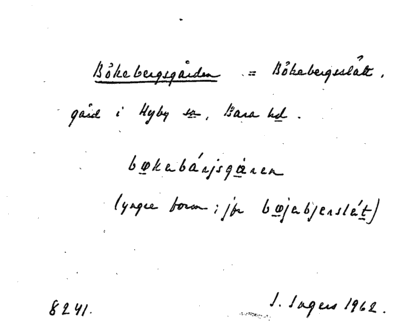 Bökebergsgården = Bökebergsslätt,
gård i Hyby sn, Bara hd.
bøkebárjsgåren
(yngre form; jfr bøjebjerslét)
8241. I. Ingers 1962.